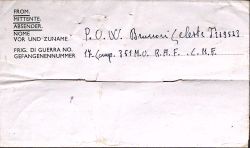 FROM.
MITTENTE.
ABSENDER.
NOME
VOR UND ZUNAME
FRIG. DI GUERRA NO.
GEFANGENENNUMMER
P.O.W. Brunori Celeste
17 Comp. 351 M.U. R.A.F. C.M.F